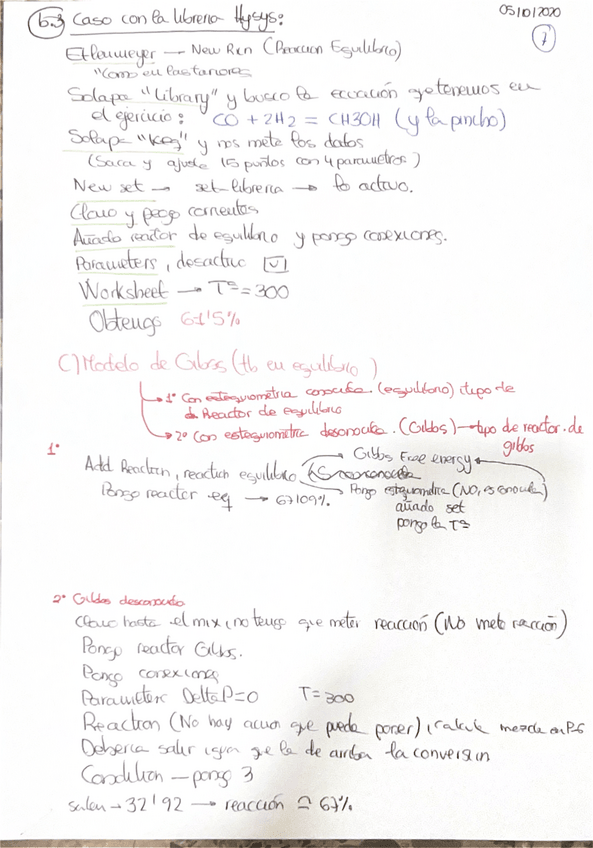 05/10/2020
7
b.3 Caso con la libreria Hysys:
New Rxn (Reaccion Equilibrio)
"Como en las anteriores
Solapa "Library" y busco la ecuación que tenemos en
el ejercicio: CO + 2H2 = CH3OH (y la pincho)
Solapa "Keq" y nos mete los datos
(Saca y ajusta 15 puntos con 4 parametros)
New set → set-libreria → lo activo.
Clono y pego corrientes
Añado reactor de equilibrio y pongo conexiones.
Parameters, desactivo
Worksheet → Tª = 300
Obtengo 61'5%
C) Modelo de Gibbs (tb en equilibrio)
1º Con estequiometria conocida (equilibrio) tipo de
Reactor de equilibrio
2º Con estequiometria desconocida. (Gibbs) → tipo de reactor de
gibbs
1º
Gibbs Free energy
Add Reaction, reaction equilibrio
Pongo estequiometria (NO, es conocida)
Pongo reactor eq → 67'09%.
añado set
pongo la Tª
2º Gibbs desconocido
Clono hasta el mix, no tengo que meter reacción (No meto reacción)
Pongo reactor Gibbs.
Pongo conexiones
Parameters Delta P=0 T=300
Reaction (No hay que pueda poner), calcula
Deberia salir igual que la de arriba la conversion
Condition — pongo 3
salen → 32'92 → reacción ≃ 67%